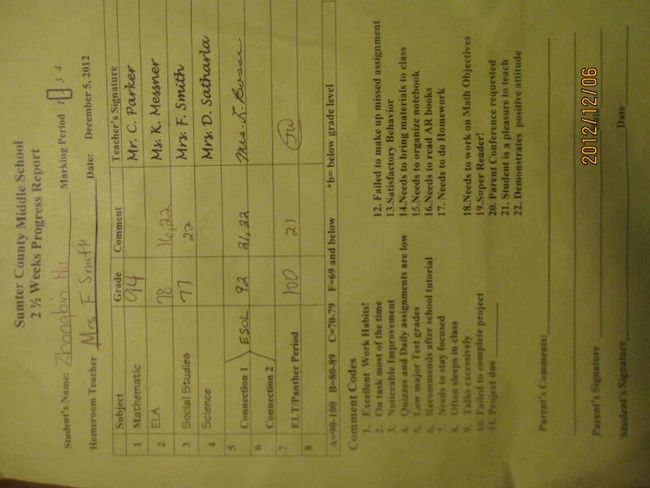 Sumter County Middle School
2 ½ Weeks Progress Report
Student's Name: Zhongbin Hu Marking Period 1 2 3 4
Homeroom Teacher Mrs F Smith Date: December 5, 2012
Subject Grade Comment Teacher's Signature
1 Mathematic 94 Mr. C. Parker
2 ELA 78 16,22 Ms. K. Messner
3 Social Studies 77 22 Mrs. F. Smith
4 Science Mrs. D. Satharla
5 Connection 1 ESOL 92 21,22 Mrs.
6 Connection 2
7 ELT/Panther Period 100 21
8
A=90-100 B=80-89 C=70-79 F=69 and below *b= below grade level
Comment Codes
1. Excellent Work Habits!
2. On task most of the time
3. Noticeable Improvement
4. Quizzes and Daily assignments are low
5. Low major Test grades
6. Recommends after school tutorial
7. Needs to stay focused
8. Often sleeps in class
9. Talks excessively
10. Failed to complete project
11. Project due
12. Failed to make up missed assignment
13.Satisfactory Behavior
14.Needs to bring materials to class
15.Needs to organize notebook
16.Needs to read AR books
17. Needs to do Homework
18.Needs to work on Math Objectives
19.Super Reader!
20. Parent Conference requested
21. Student is a pleasure to teach
22. Demonstrates positive attitude
Parent's Comments:
Parent's Signature
Student's Signature Date
2012/12/06